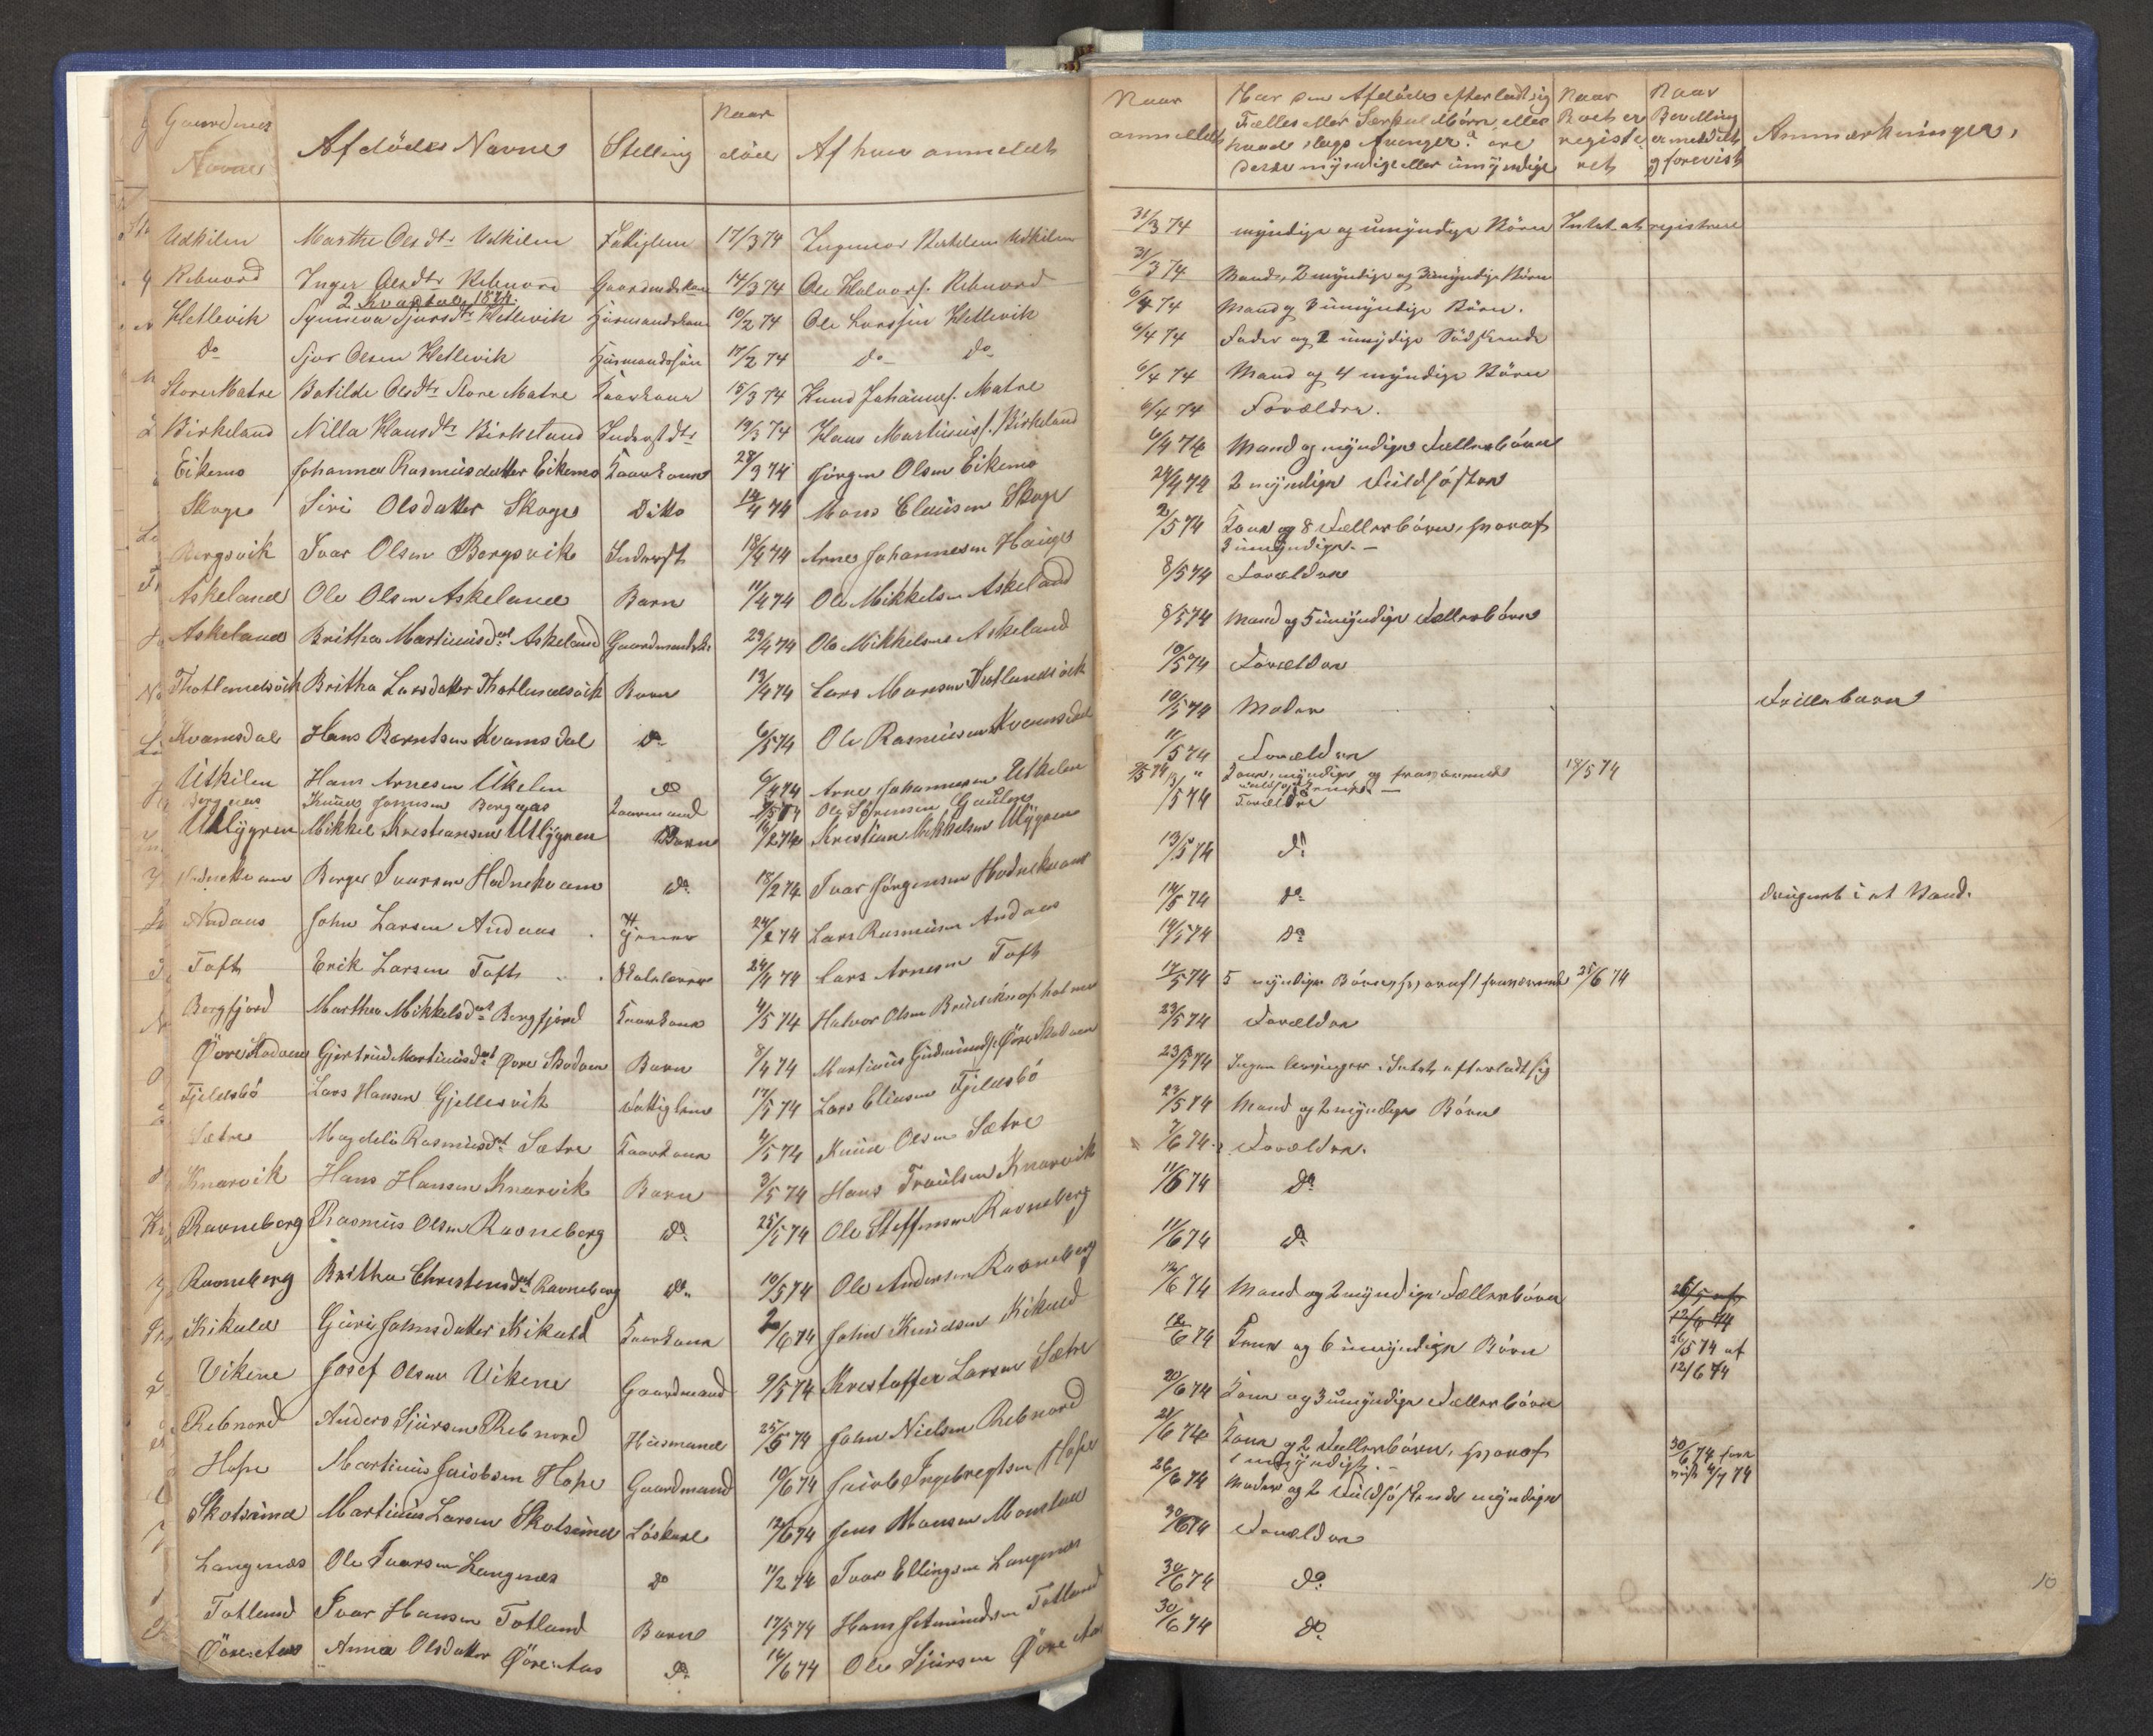 Gaardenes Navne | Afdødes Navne | Stilling | Naar død | Af hvem anmeldt
Udkilen | Marthe Olsdtr Udkilen | Fattiglem | 17/3 74 | Ingemor Udkilen
Rebnord | Inger Olsdtr Rebnord | Gaardmdskone | 14/3 74 | Ole Halvors. Rebnord
2 Kvartal 1874.
Hetlevik | Synneva Sjursdtr Hetlevik | Husmandskone | 10/2 74 | Ole Larssen Hetlevik
do | Sjur Olsen Hetlevik | Husmandssøn | 17/2 74 | do do
Store Matre | Botilde Olsdtr Store Matre | Kaarkone | 15/3 74 | Knud Johannes. Matre
Birkeland | Nilla Hansdtr Birkeland | Inderstdtr | 19/3 74 | Hans Martinus. Birkeland
Eikemo | Johanna Rasmusdatter Eikemo | Kaarkone | 28/3 74 | Jørgen Olsen Eikemo
Skoge | Siri Olsdatter Skoge | Ditto | 12/4 74 | Mons Clausen Skoge
Bergsvik | Ivar Olsen Bergsvik | Inderst | 18/4 74 | Arne Johannesen Hauge
Askeland | Ole Olsen Askeland | Barn | 11/4 74 | Ole Mikkelsen Askeland
Askeland | Britha Martinusdat Askeland | Gaardmandsk. | 29/4 74 | Ole Mikkelsen Askeland
Thotlandsvik | Britha Larsdatter Thotlandsvik | Barn | 13/4 74 | Lars Monsen Thotlandsvik
Kvamsdal | Hans Berntsen Kvamsdal | do | 6/5 74 | Ole Rasmussen Kvamsdal
Utkilen | Hans Arnesen Utkelen | do | 6/4 74 | Arne Johannesen Utkelen
Bergnæs | Knud Jonnsen Bergnæs | Kaarmand | 7/5 74 | Ole Sørensen Gaulen
Utlygren | Mikkel Kristiansen Utlygren | Barn | 16/2 74 | Kristian Mikkelsen Utlygren
Hodnekvam | Berge Ivarsen Hodnekvam | do | 18/2 74 | Ivar Jørgensen Hodnekvam
Andaas | John Larsen Andaas | | 24/2 74 | Lars Rasmusen Andaas
Toft | Erik Larsen Toft | Skolelærer | 24/4 74 | Lars Arnesen Toft
Bergfjord | Marthea Mikkelsdat Bergfjord | Kaarkone | 4/5 74 | Halvor Olsen
Øvre Skodven | Gjertrud Martinusdat Øvre Skodven | Barn | 8/4 74 | Martinus Gudmunds. Øvre Skodven
Fjeldsbø | Lars Hansen Gjellesvik | Fattiglem | 17/5 74 | Lars Eliasen Fjeldsbø
Sætre | Magdeli Rasmusdat Sætre | Kaarkone | 4/5 74 | Knud Olsen Sætre
Knarvik | Hans Hansen Knarvik | Barn | 3/5 74 | Hans Troulsen Knarvik
Ravneberg | Rasmus Olsen Ravneberg | do | 25/5 74 | Ole Steffensen Ravneberg
Ravneberg | Britha Christensdat Ravneberg | do | 10/5 74 | Ole Andersen Ravneberg
Kikald | Guri Johnsdatter Kikald | Kaarkone | 2/6 74 | John Knudsen Kikald
Vikene | Josef Olsen Vikene | Gaardmand | 9/5 74 | Kristoffer Larsen Sætre
Rebnord | Anders Sjursen Rebnord | Husmand | 25/5 74 | John Nielsen Rebnord
Hope | Martinus Jacobsen Hope | Gaardmand | 10/6 74 | Jacob Ingebregtsen Hope
Skotsund | Martinus Larsen Skotsund | Løskarl | 12/6 74 | Jens Monsen
Langenæs | Ole Ivarsen Langenæs | do | 11/2 74 | Ivar Ellingsen Langenæs
Totland | Ivar Hansen Totland | Barn | 17/5 74 | Hans Totland
Øvre Aas | Anna Olsdatter Øvre Aas | do | 16/6 74 | Ole Sjursen Øvre Aas
Naar anmeldt | Har den Afdøde efterladt sig Fælles eller Særkuldbørn eller hvad slags Arvinger? ere disse myndige eller umyndige | Naar Boet er registeret | Naar Bevilling er meddelt og forevist | Anmærkninger.
31/3 74 | myndige og umyndige Børn | Intet at registrere
31/3 74 | Mand, 2 myndige og 3 umyndige Børn
6/4 74 | Mand og 3 umyndige Børn.
6/4 74 | Fader og 2 umydige Sødskende
6/4 74 | Mand og 4 myndige Børn
6/4 74 | Forældre.
6/4 74 | Mand og myndige Fællesbørn
24/4 74 | 2 myndige Fuldsøstre
2/5 74 | Kone og 8 Fællesbørn, hvoraf
3 umyndige. —
8/5 74 | Forældre
8/5 74 | Mand og 5 umyndige Fællesbørn
10/5 74 | Forældre
10/5 74 | Moder | Frillebarn
11/5 74 | Forældre
7/5 74 | Kone, myndige og fraværende | 18/5 74
13/5 74 | Forældre
13/5 74 | do
14/5 74 | do | druknet i et Vand.
14/5 74 | do
17/5 74 | 5 myndige Børn, hvoraf 1 fraværende | 25/6 74
23/5 74 | Forældre
23/5 74 | Ingen Arvinger. Intet efterladt sig
23/5 74 | Mand og 2 myndige Børn
7/6 74 | Forældre.
11/6 74 | do
11/6 74 | do
12/6 74 | Mand og 2 myndige Fællesbørn | 12/6 74
12/6 74 | Kone og 6 umyndige Børn | 26/5 74 af
12/6 74
20/6 74 | Kone og 3 umyndige Fællesbørn
21/6 74 | Kone og 2 Fællesbørn, hvoraf
1 umyndigt. — | 30/6 74 fore
vist 4/7 74
26/6 74 | Moder og 2 Fuldsøskende myndige
30/6 74 | Forældre
30/6 74 | do
30/6 74 | do
10